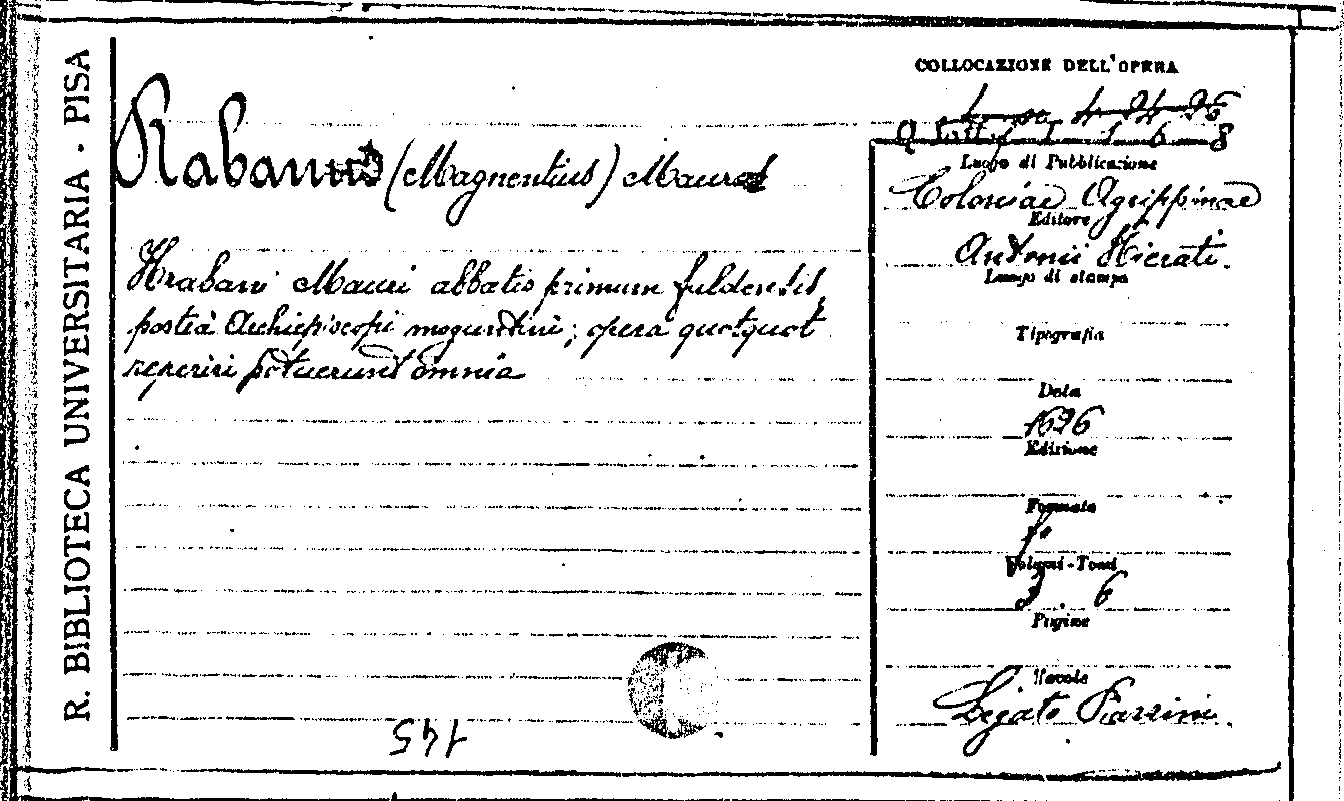 R. BIBLIOTECA UNIVERSITARIA · PISA
Rabanus (Magnentius) Maurus
Hrabani Mauri abbatis primum fuldensis,
posteà Archiepiscopi moguntini; opera quotquot
reperiri potuerunt omnia
145
COLLOCAZIONE DELL'OPERA
4 24 26
1 6 8
Luogo di Pubblicazione
Coloniae Agrippinae
Editore
Antonii Hierati.
Luogo di stampa
Tipografia
Data
1626
Edizione
Formato
f°
Volumi - Tomi
3 6
Pagine
Tavole
Legato Piazzini.